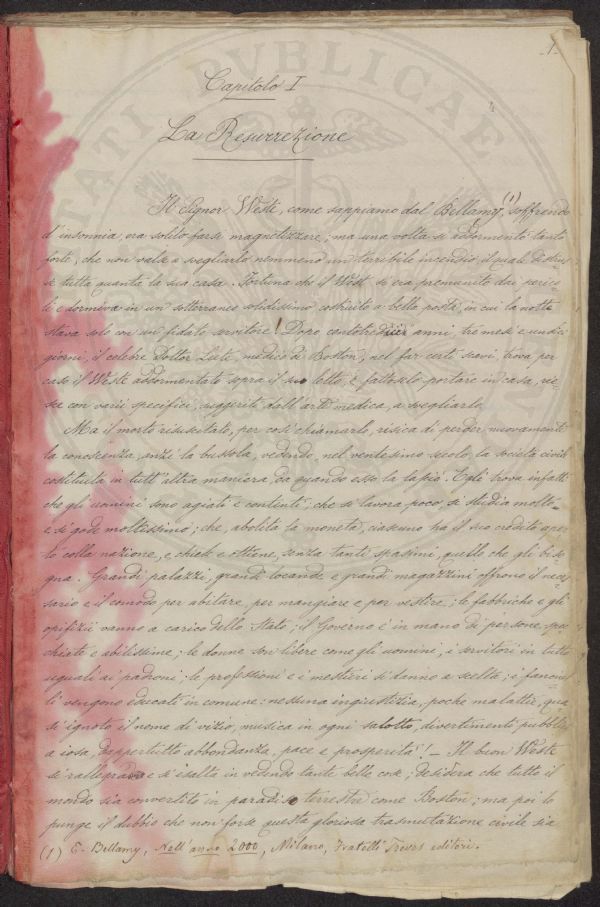 1.
Capitolo I
La Resurrezione
Il Signor Weste, come sappiamo dal Bellamy, (1) soffrendo
d'insonnia, era solito farsi magnetizzare; ma una volta si addormentò tanto
forte, che non valse a svegliarlo nemmeno un terribile incendio, il quale distrus-
se tutta quanta la sua casa. Fortuna che il West si era premunito dai perico-
li e dormiva in un sotterraneo solidissimo costruito a bella posta, in cui la notte
stava solo con un fidato servitore! Dopo centotredici anni, tre mesi e undici
giorni, il celebre Dottor Leete, medico di Boston, nel far certi scavi, trova per
caso il Weste addormentato sopra il suo letto, e, fattoselo portare in casa, rie-
sce con varii specifici, suggeriti dall'arte medica, a svegliarlo.
Ma il morto risuscitato, per così chiamarlo, risica di perder nuovamente
la conoscenza, anzi la bussola, vedendo, nel ventesimo secolo, la società civile
costituita in tutt'altra maniera, da quando esso la lasciò. Egli trova infatti
che gli uomini sono agiati e contenti, che si lavora poco, si studia molto
e si gode moltissimo; che, abolita la moneta, ciascuno ha il suo credito aper-
to colla nazione, e chiede e ottiene, senza tanti spasimi quello che gli biso-
gna. Grandi palazzi, grandi locande e grandi magazzini offrono il neces-
sario e il comodo per abitare, per mangiare e per vestire; le fabbriche e gli
opifizii vanno a carico dello Stato; il Governo è in mano di persone spec-
chiate e abilissime; le donne son libere come gli uomini, i servitori in tutto
uguali ai padroni; le professioni e i mestieri si danno a scelta; i fanciul-
li vengono educati in comune: nessuna ingiustizia, poche malattie, qua-
si ignoto il nome di vizio, musica in ogni salotto, divertimenti pubblici
a iosa, dappertutto abbondanza, pace e prosperità! — Il buon Weste
si rallegra e si esalta in vedendo tante belle cose; desidera che tutto il
mondo sia convertito in paradiso terrestre come Boston; ma poi lo
punge il dubbio che non forse questa gloriosa trasmutazione civile sia
(1) E. Bellamy, Nell'anno 2000, Milano, Fratelli Treves editori.